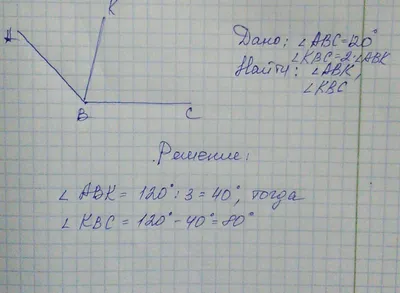 K
A
B
C
Дано: ∠ABC=120°
∠KBC=2·∠ABK
Найти: ∠ABK,
∠KBC
Решение:
∠ABK = 120°:3=40°, тогда
∠KBC = 120°-40°=80°